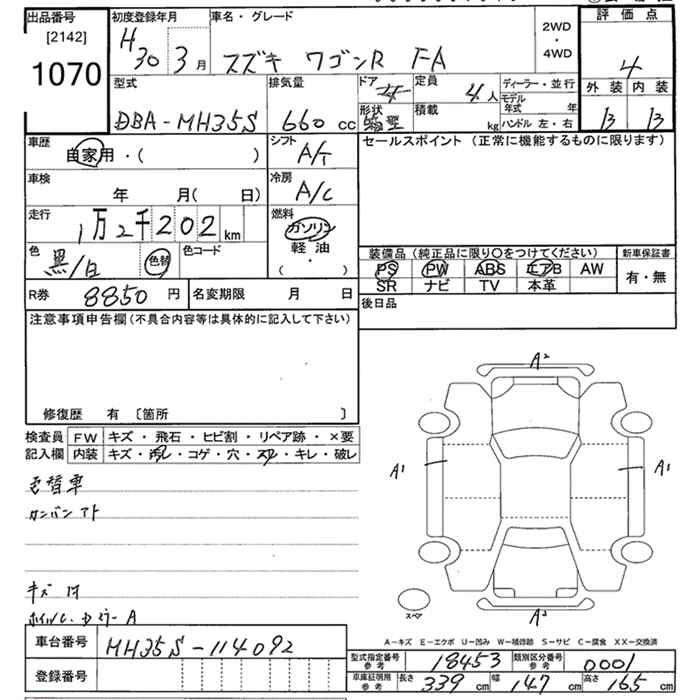 出品番号 初度登録年月 車名・グレード 2WD・4WD 評価点
[2142]
1070 H30 3月 スズキ ワゴンR FA 4
型式 排気量 ドア 定員 4人 ディーラー・並行 外装 内装
DBA-MH35S 660 cc 形状 積載 kg モデル年式 年 ハンドル 左・右 B B
車歴 自家用・( ) シフト A/T セールスポイント (正常に機能するものに限ります)
車検 年 月(日) 冷房 A/C
走行 1万2千202km 燃料 ガソリン
軽油
(・)
色 黒/白 色替 色コード 装備品 (純正品に限り○をつけてください) 新車保証書
PS PW ABS エアB AW 有・無
SR ナビ TV 本革
R券 8850 円 名変期限 月 日 後日品
注意事項申告欄(不具合内容等は具体的に記入して下さい)
修復歴 有 〔箇所 〕
検査員 FW キズ・飛石・ヒビ割・リペア跡・×要
記入欄 内装 キズ・汚レ・コゲ・穴・スレ・キレ・破レ
色替車
カンバンアト
キズ 付
A2
A1 A1
スペア
A2
A-キズ E-エクボ U-凹み W-補修跡 S-サビ C-腐食 XX-交換済
車台番号 MH35S-114092
登録番号
型式指定番号 参考 18453 類別区分番号 参考 0001
車庫証明用 参考 長さ 339 cm 幅 147 cm 高さ 165 cm